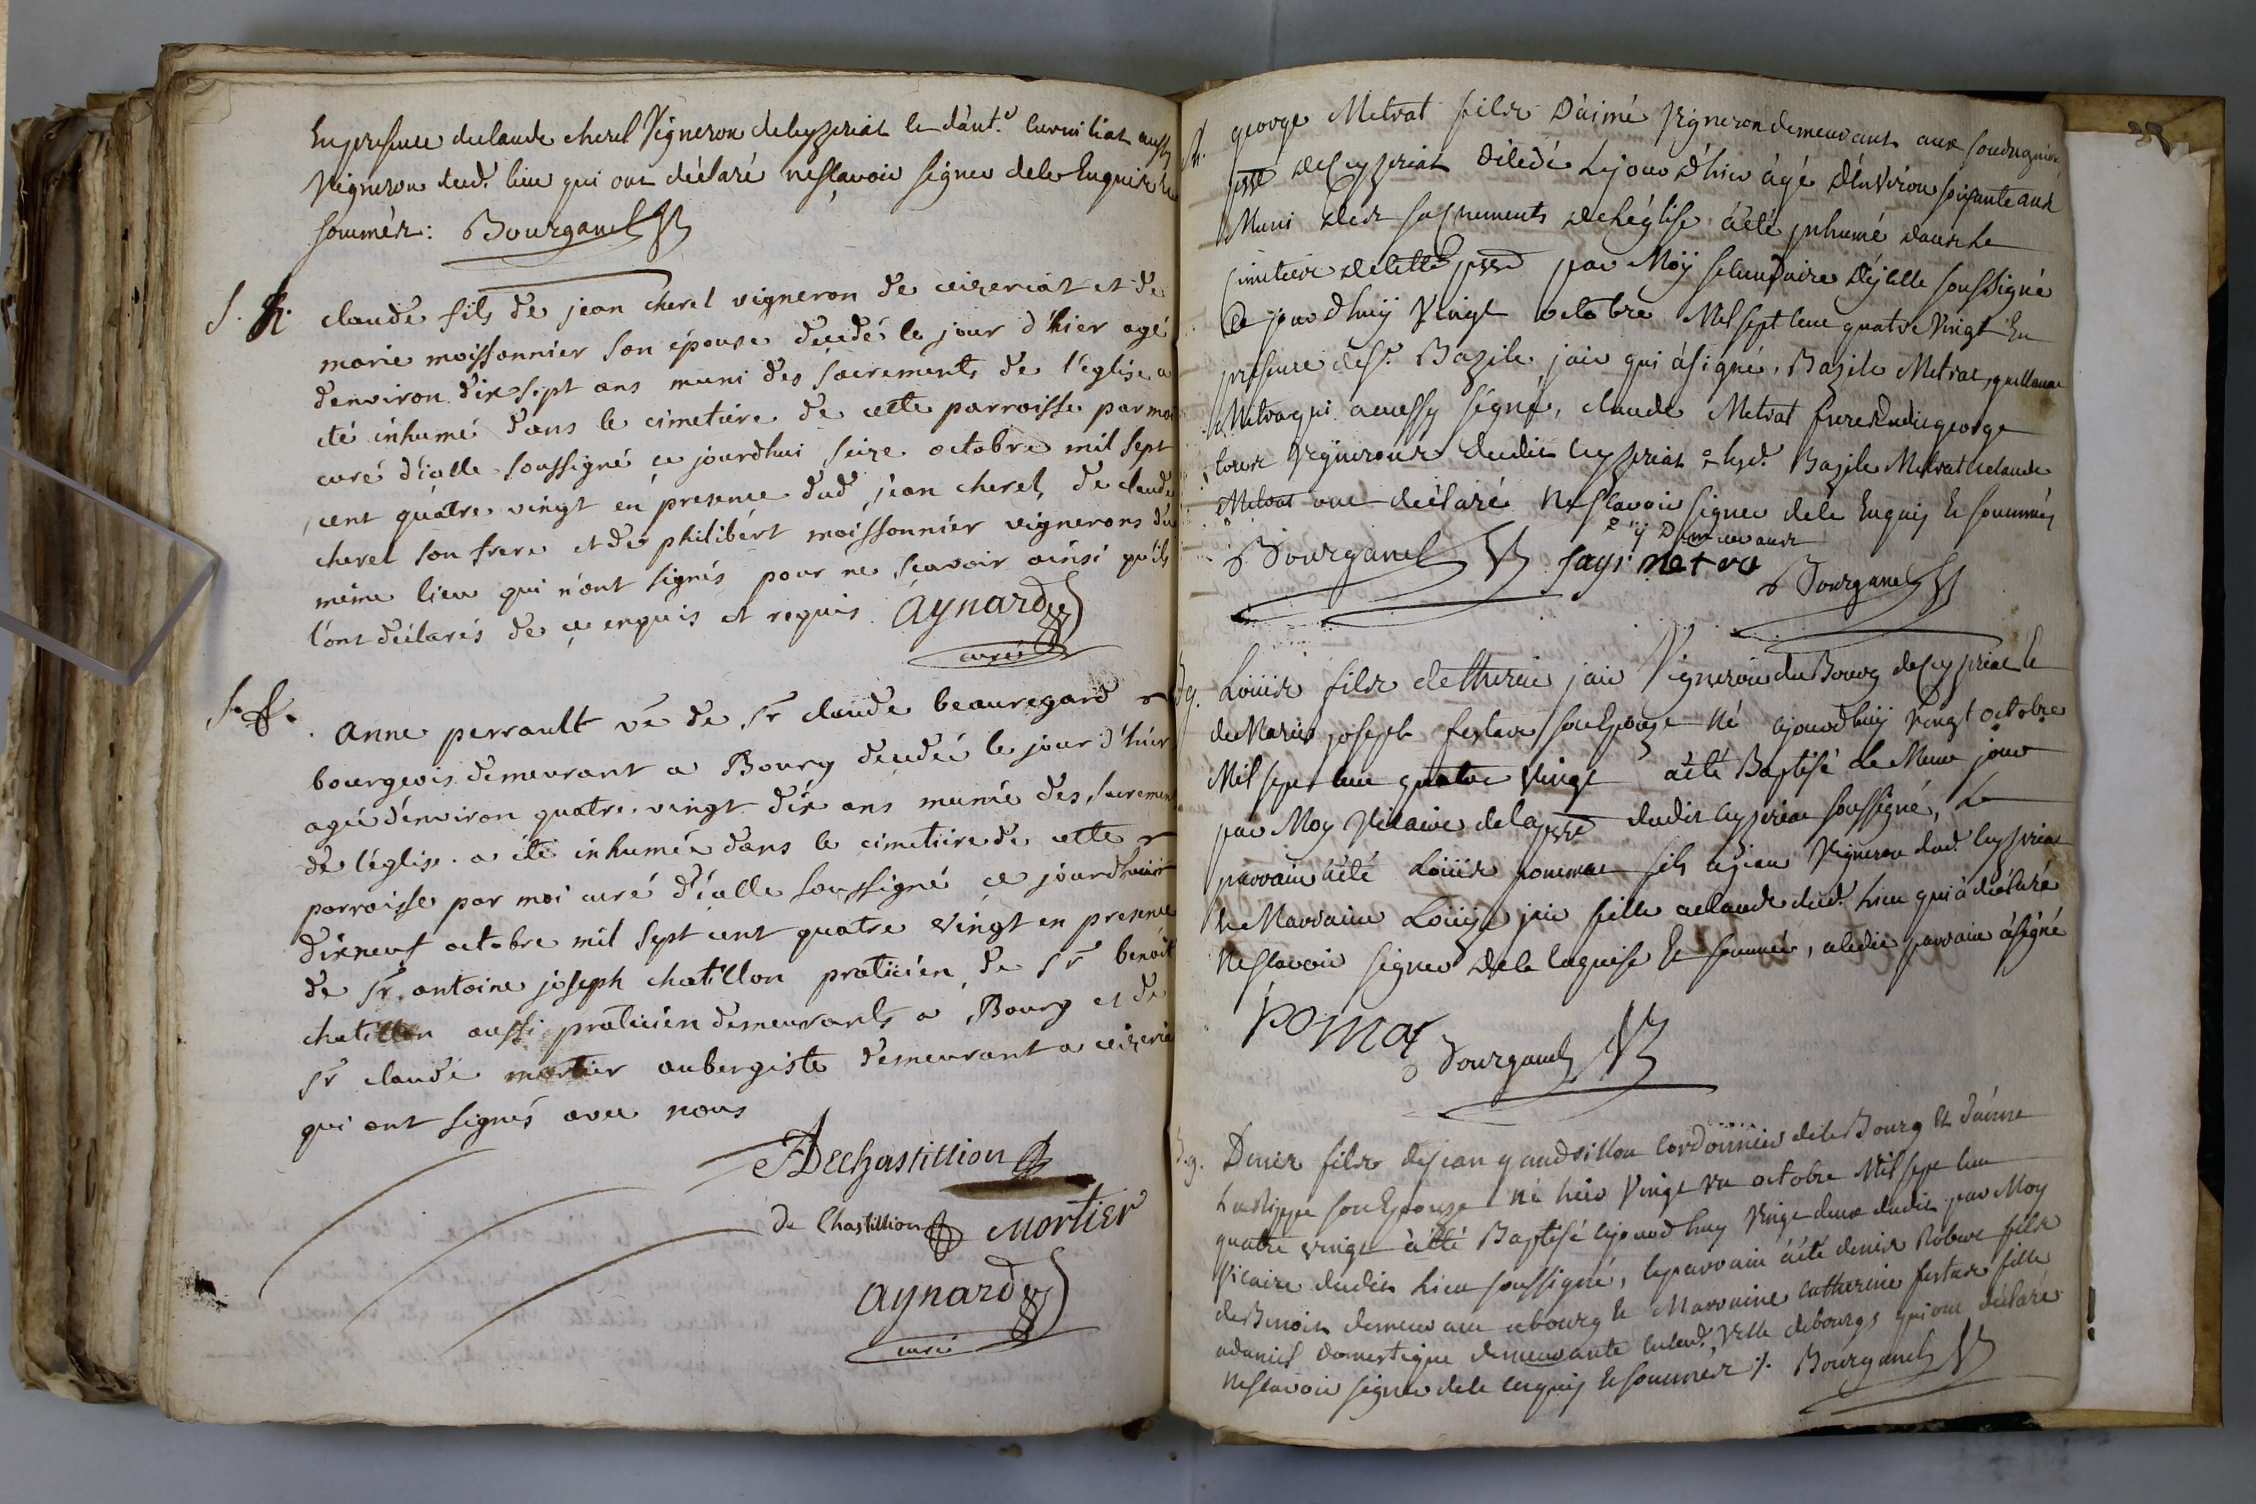 En presence de claude cherel Vigneron de Ceyzeriat
Vigneron dud.t lieu qui ont déclaré ne sçavoir signer de le Enquis Et
sommés: Bourganel
S. h. claude fils de jean cherel vigneron de ceizeriat et de
marie moissonnier son épouse decedé le jour d'hier agé
d'environ dix sept ans muni des sacrements de l'église a
eté inhumé dans le cimetiere de cette parroisse par moi
curé d'icelle soussigné ce jourdhui seize octobre mil sept
cent quatre vingt en presence dud jean cherel, de claude
cherel son frere et de philibert moissonnier vignerons du
même lieu qui n'ont signés pour ne scavoir ainsi qu'ils
l'ont déclarés de ce enquis et requis. Aynard
curé
S. f. anne perrault ve de Sr claude beauregard
bourgeois demeurant a Bourg decedée le jour d'hier
agée d'environ quatre vingt dix ans munie des sacrements
de l'église a été inhumée dans le cimetiere de cette
parroisse par moi curé d'icelle soussigné ce jourdhui
dixneuf octobre mil sept cent quatre vingt en presence
de Sr antoine joseph chatillon praticien, de Sr benoit
chatillon aussi praticien demeurants a Bourg et de
Sr claude mortier aubergiste demeurant a ceizeria
qui ont signés avec nous
Dechastillion
De Chastillion Mortier
Aynard
curé
h. george Metrat fils D'aimé Vigneron demeurant aux
psse de Ceyzeriat décédé Le jour d'hier âgé D'Environ soixante ans
Muni des sacrements de L'église a été inhumé dans Le
cimetiere de cette psse par Moÿ D'ycelle soussigné
Ce jourdhuÿ Vingt octobre Mil sept cent quatre Vingt En
presence de sr. Bazile jaÿr qui a signé, Bazile Metrat, guillaume
Metra qui a aussy signé, claude Metrat freres dudit george
tous Vignerons dudit ceyzeriat Lesd. Bazile Metrat et claude
Metrat ont déclaré Ne sçavoir signer de le Enquis Et sommés
Bourganel metra Bourganel
Bg. Loüis fils de jaÿr Vigneron du Bourg de Ceyzeriat Et
de Marie joseph son Epouze Né cejourdhuÿ Vingt octobre
Mil sept cent quatre Vingt a été Baptisé Le Meme jour
par Moy Vicaire de la psse dudit Ceyzeriat soussigné, Le
parrain a été Loüis pommat fils a jean Vigneron dud. Ceyzeriat
la Marraine Loüise jaÿr fille a claude dud. lieu qui a déclaré
Ne sçavoir signer de le Enquise Et sommée, et ledit parrain a signé
Pomat
Bourganel
Bg. Denis fils de jean cordonnier de Bourg Et d'anne
son Epouze Né hier Vingt un octobre Mil sept cent
quatre vingt a été Baptisé cejourdhuy Vingt deux dudit par Moy
Vicaire dudit Lieu soussigné, le parrain a été denis Robert fils
de Benoit demeurant a bourg Et la Marraine catherine fille
a daniel domestique demeurante en lad. Ville de bourg qui ont déclaré
Ne sçavoir signer de le Enquis Et sommés ./. Bourganel